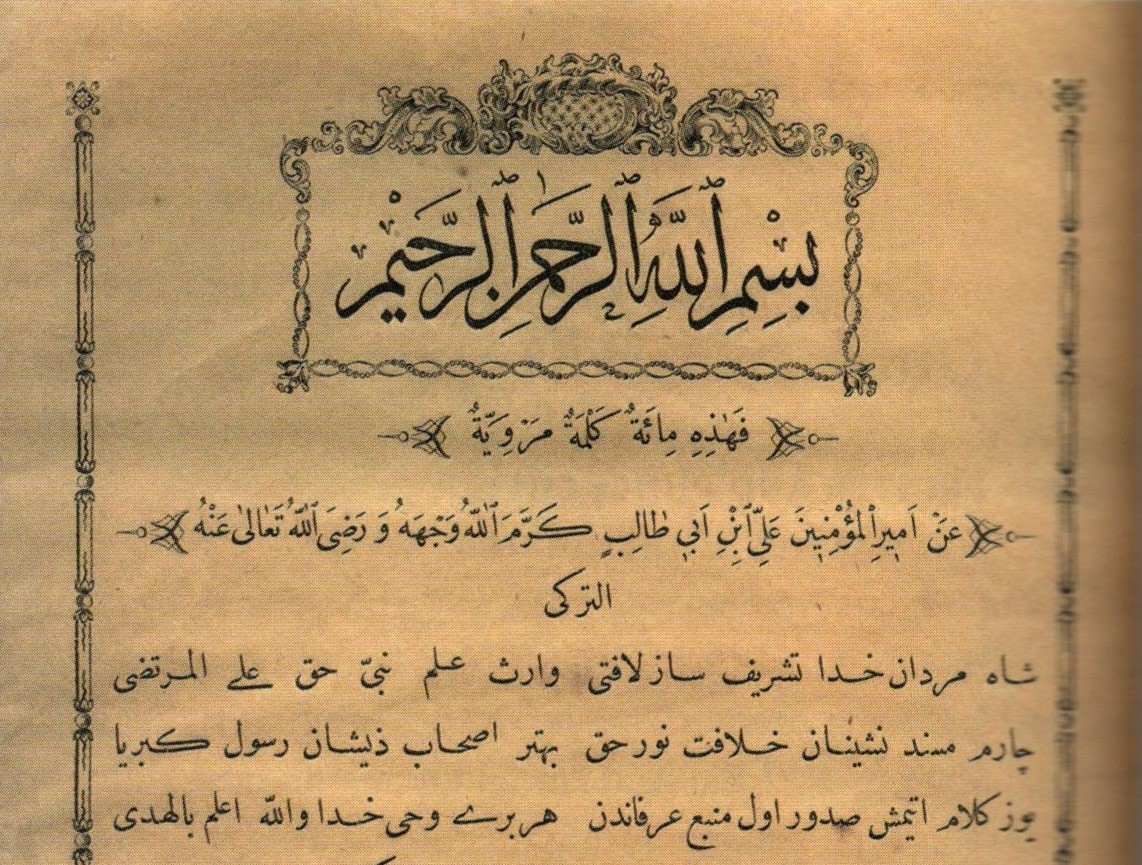 بِسْمِ ٱللَّهِ ٱلرَّحْمٰنِ ٱلرَّحِيْمِ
فَهٰذِهِ مِائَةُ كَلِمَةٌ مَرْوِيَّةٌ
عَنْ اَمِيرِ ٱلْمُؤْمِنِينَ عَلِيِّ ٱبْنِ اَبِي طَالِبٍ كَرَّمَ ٱللّٰهُ وَجْهَهُ وَ رَضِىَ ٱللّٰهُ تَعٰالىٰ عَنْهُ
التركى
شاه مردان خدا تشريف ساز لافتى وارث علم نبىّ حق على المرتضى
چارم مسند نشينان خلافت نور حق بهتر اصحاب ذيشان رسول كبريا
يوز كلام اتيمش صدور اول منبع عرفاندن هر برى وحى خدا والله اعلم بالهدى